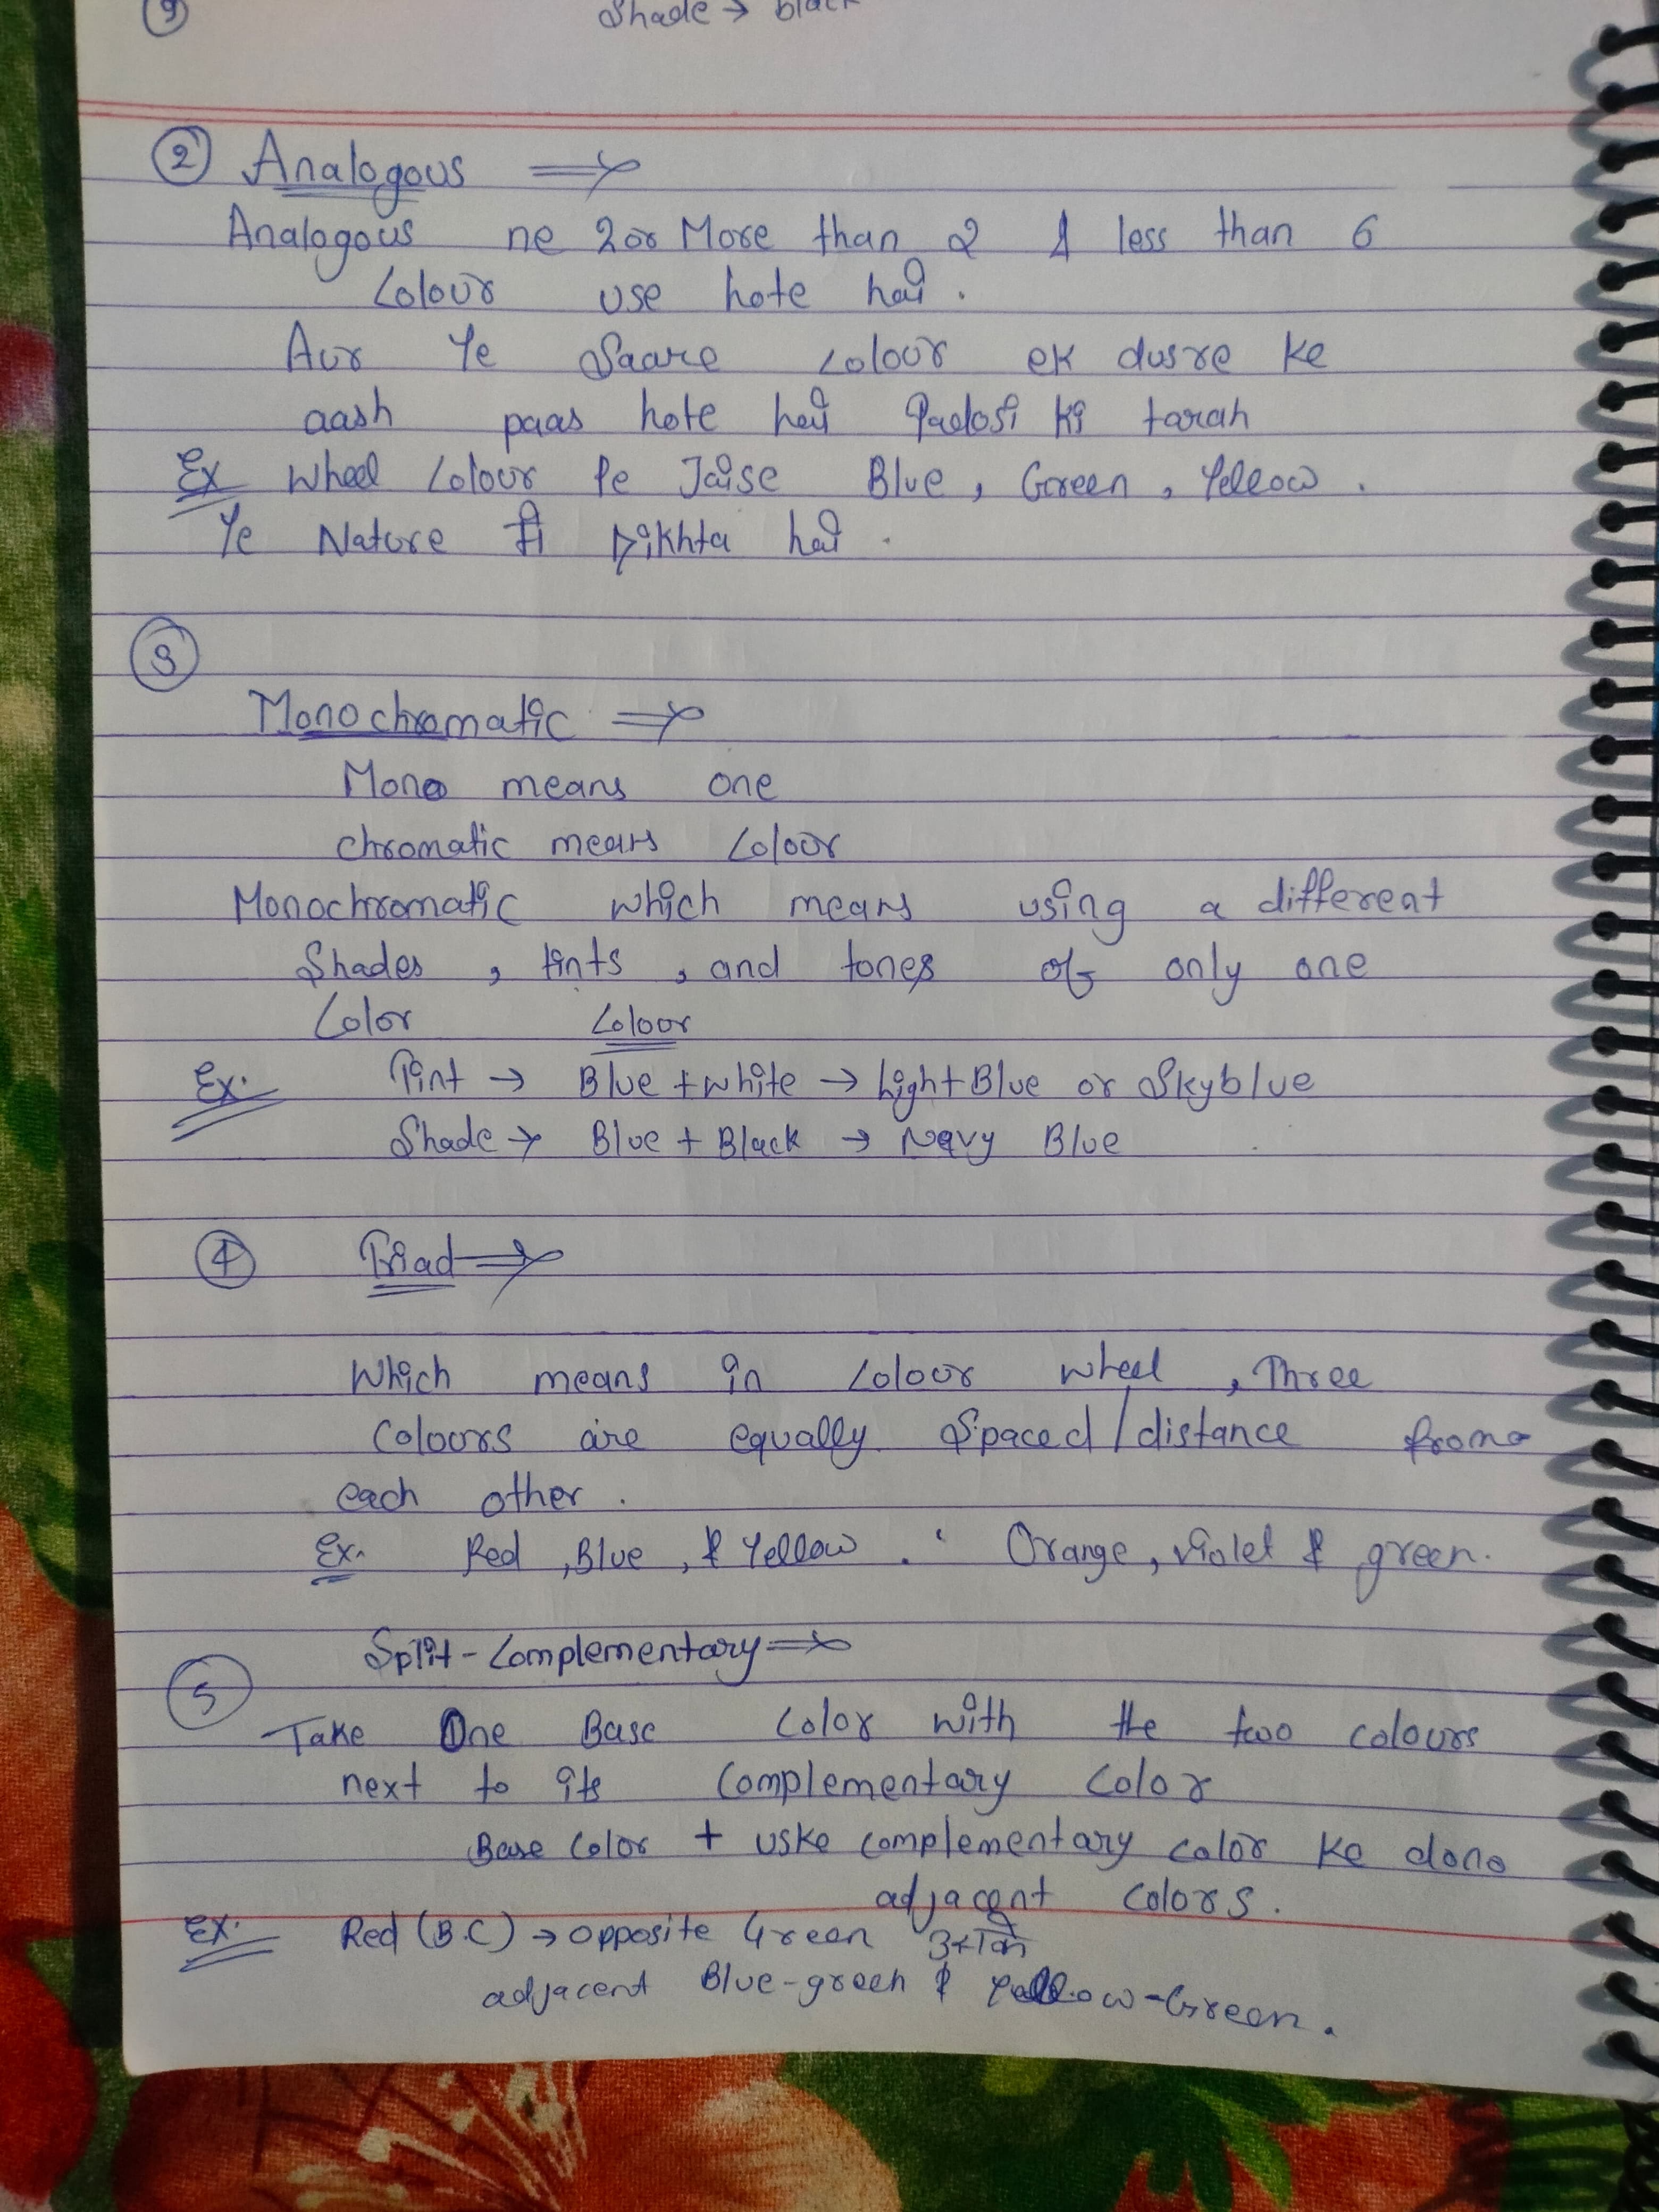 Shade → black
② Analogous ⇒
Analogous ne 2 or More than 2 & less than 6
Colour use hote hai.
Aur Ye Saare colour ek dusre ke
aash paas hote hai Padosi ki tarah
Ex Wheel Colour Pe Jaise Blue, Green, Yellow.
Ye Nature में Dikhta hai.
③
Monochromatic ⇒
Mono means one
chromatic means Colour
Monochromatic which means using a different
Shades, tints, and tones of only one
Color Colour
Ex. Tint → Blue + white → Light Blue or Skyblue
Shade → Blue + Black → Navy Blue
④ Triad ⇒
Which means in Colour wheel, Three
Colours are equally Spaced/distance from
each other.
Ex. Red, Blue, & Yellow. Orange, violet & green.
Split-Complementary ⇒
⑤
Take One Base Color with the two colours
next to its Complementary Color
Base Color + uske complementary color ke dono
adjacent colors.
Ex. Red (B.C) → opposite Green उसके
adjacent Blue-green & Yellow-Green.